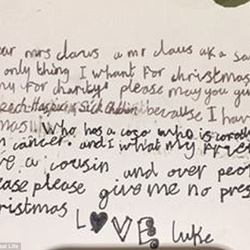 ear mrs claus a mr claus aka sa
only thing I whant for christmas
ny for charity please may you giv
Sick because I hav
mas Who has a who is
cancer. and I what my
ve a cousin and over peop
ease please give me no pres
hristmas LOVE luke